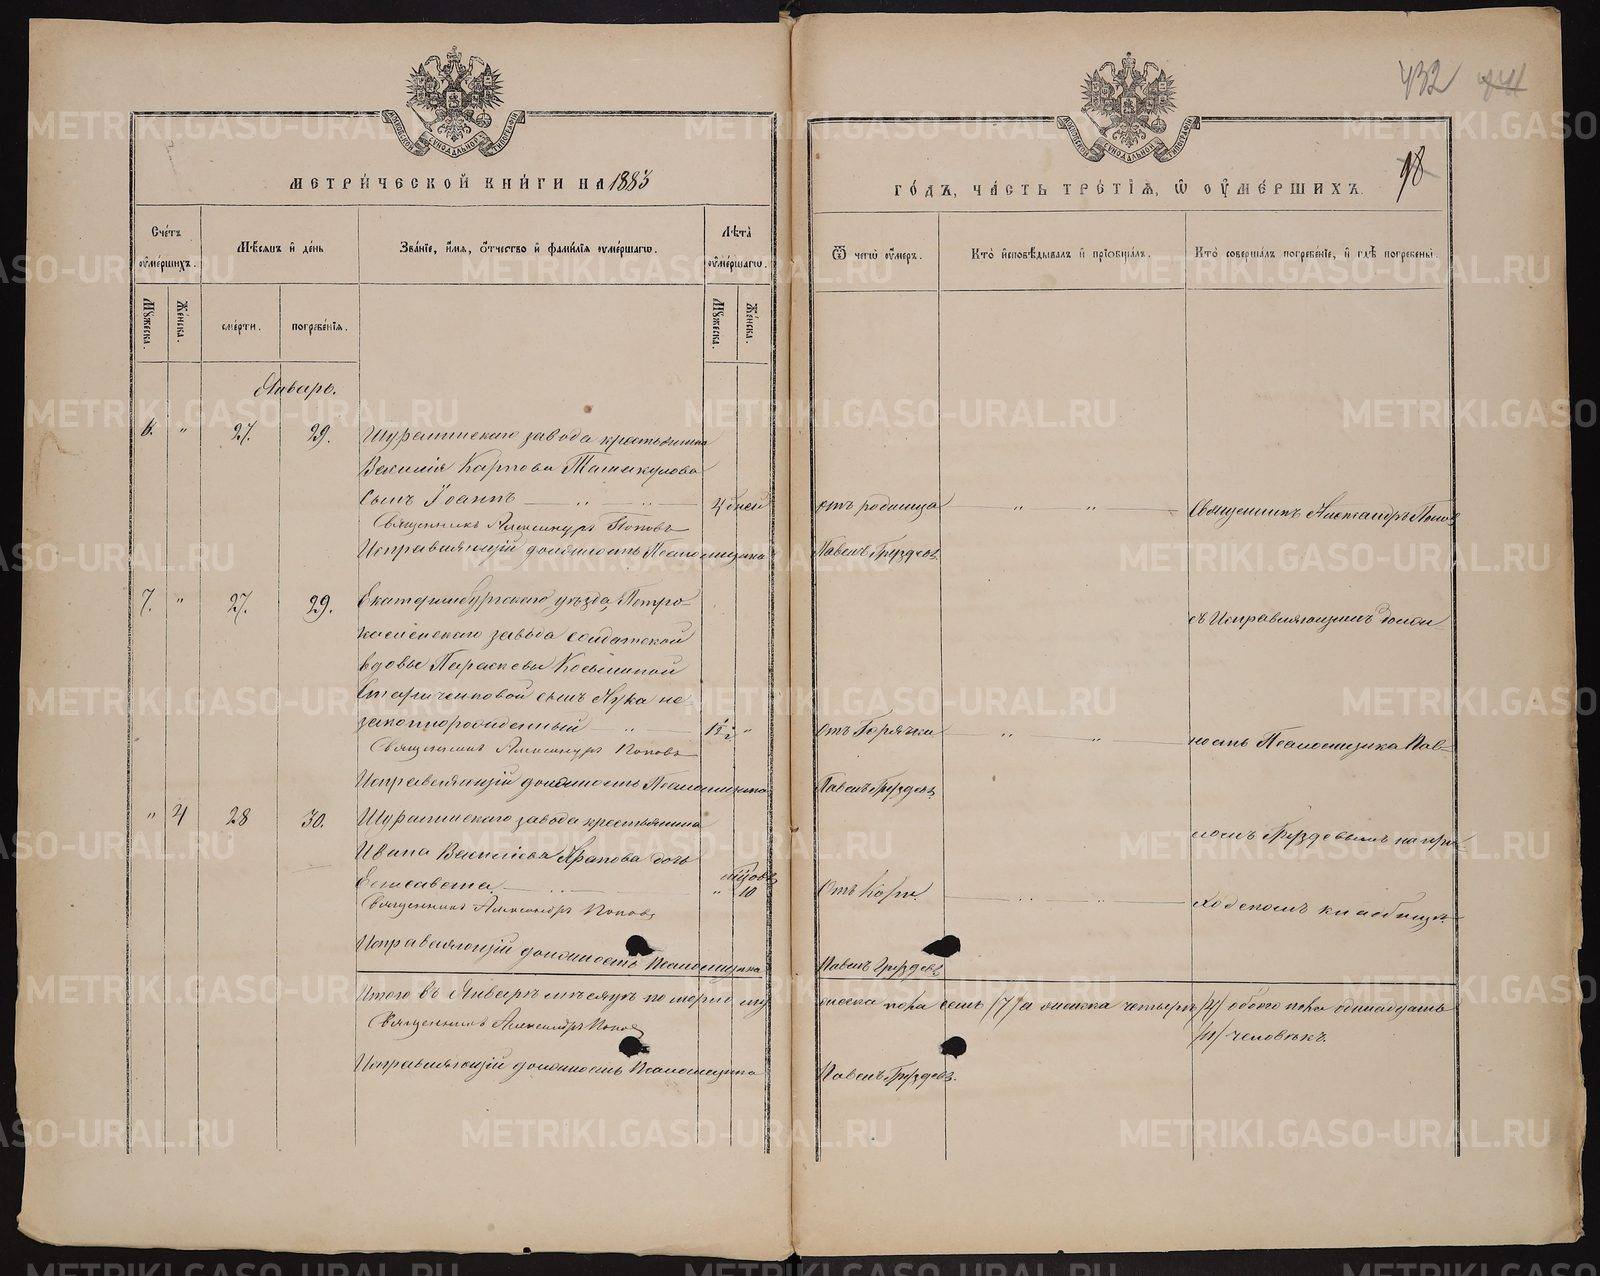 432
98
МЕТРИЧЕСКОЙ КНИГИ НА 1883
ГОДЪ, ЧАСТЬ ТРЕТІЯ, Ѿ ОУМЕРШИХЪ.
Счетъ оумершихъ.
Мѣсяцъ и день
Званіе, имя, отчество и фамилія оумершагѡ.
Лѣта оумершагѡ.
Ѿ чегѡ оумеръ.
Кто исповѣдывалъ и пріобщалъ.
Кто совершалъ погребеніе, и гдѣ погребены.
Мужеска.
Женска.
смерти.
погребенія.
Мужеска.
Женска.
Январь.
6. " 27. 29. Шуралинскаго завода крестьянина
Василія Карпова Ташкулова
сынъ Іоаннъ 4 дней отъ родимца " " Священникъ Александръ Попов
Священникъ Александръ Поповъ
Исправляющій должность Псаломщика Павелъ Груздевъ
7. " 27. 29. Екатеринбургскаго уѣзда, Петро-
каменскаго завода солдатской
съ Исправляющимъ долж
вдовы Параскевы Косминой
сынъ Лука не
законнорожденный " 1½ " отъ Горячки " " ность Псаломщика Пав-
Священникъ Александръ Поповъ
Исправляющій должность Псаломщика Павелъ Груздевъ
" 4 28 30. Шуралинскаго завода крестьянина
ломъ Груздевымъ на при-
Ивана Васильева Арапова дочь
Елисавета " 10 отъ Кори. ходскомъ кладбищѣ.
Священникъ Александръ Поповъ
Исправляющій должность Псаломщика Павелъ Груздевъ
Итого въ Январѣ мѣсяцѣ померло му жеска пола семь /7/ а женска четыре /4/ обоего пола одинадцать
/11/ человѣкъ.
Священникъ Александръ Попов
Исправляющій должность Псаломщика Павелъ Груздевъ.
METRIKI.GASO-URAL.RU